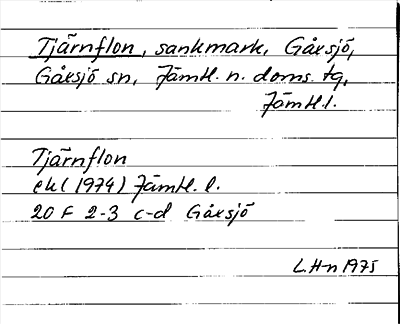 Tjärnflon, sankmark, Gåxsjö,
Gåxsjö sn, Jämtl. n. doms. tg,
Jämtl.l.
Tjärnflon
ek (1974) Jämtl. l.
20 F 2-3 c-d Gåxsjö
L.H-n 1975